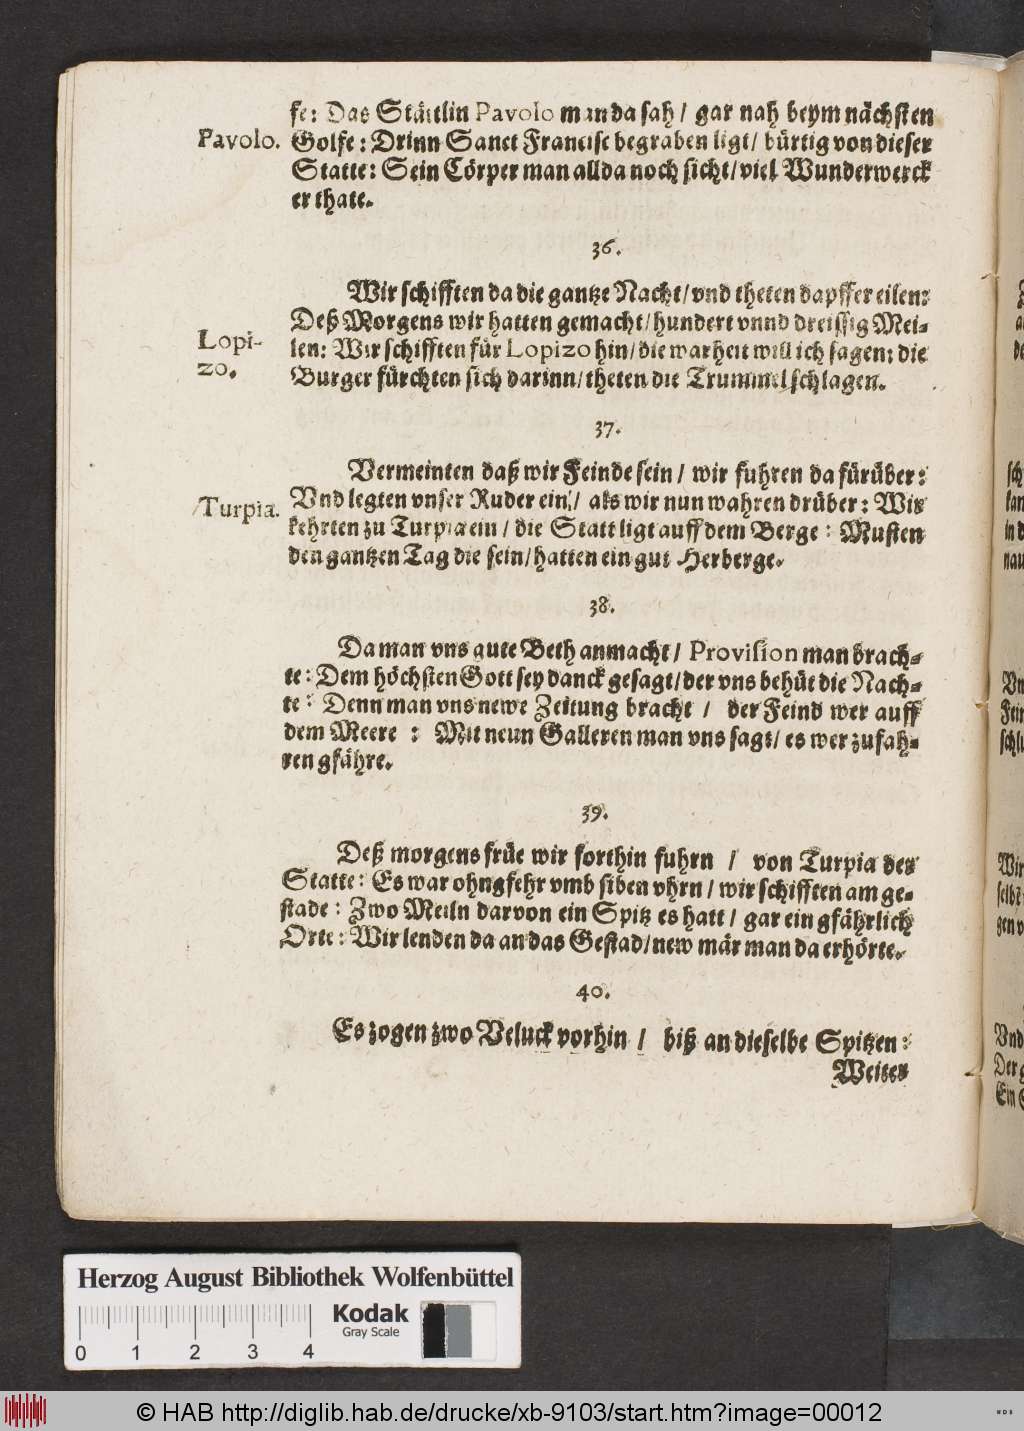 fe: Das Stättlin Pavolo man da sah / gar nah beym nächsten
Pavolo.
Golfe: Drinn Sanct Francisc begraben ligt / bürtig von dieser
Statte: Sein Cörper man allda noch sicht / viel Wunderwerck
er thate.
36.
Wir schifften da die gantze Nacht / vnd theten dapffer eilen:
Deß Morgens wir hatten gemacht / hundert vnnd dreissig Mei-
Lopi-
zo.
len: Wir schifften für Lopizo hin / die warheit will ich sagen: die
Burger fürchten sich darinn / theten die Trummel schlagen.
37.
Vermeinten daß wir Feinde sein / wir fuhren da fürüber:
Turpia.
Vnd legten vnser Ruder ein / als wir nun wahren drüber: Wir
kehrten zu Turpia ein / die Statt ligt auff dem Berge: Musten
den gantzen Tag die sein / hatten ein gut Herberge.
38.
Da man vns gute Beth anmacht / Provision man brach-
te: Dem höchsten Gott sey danck gesagt / der vns behüt die Nach-
te: Denn man vns newe Zeitung bracht / der Feind wer auff
dem Meere: Mit neun Galleren man vns sagt / es wer zufah-
ren gfähre.
39.
Deß morgens früe wir forthin fuhrn / von Turpia der
Statte: Es war ohngfehr vmb siben vhrn / wir schifften am ge-
stade: Zwo Meiln darvon ein Spitz es hatt / gar ein gfährlich
Orte: Wir lenden da an das Gestad / new mär man da erhörte.
40.
Es zogen zwo Veluck vorhin / biß an dieselbe Spitzen:
Weiter
Herzog August Bibliothek Wolfenbüttel
Kodak
Gray Scale
0 1 2 3 4
© HAB http://diglib.hab.de/drucke/xb-9103/start.htm?image=00012